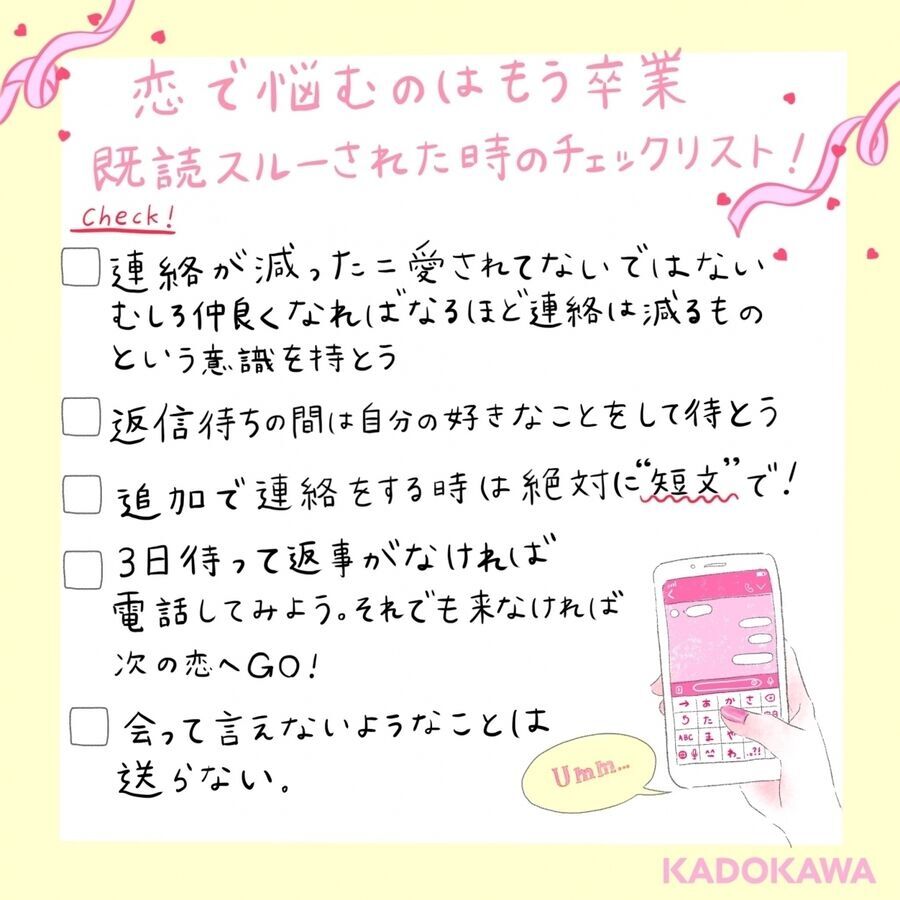 恋で悩むのはもう卒業
既読スルーされた時のチェックリスト!
Check!
連絡が減った=愛されてないではない
むしろ仲良くなればなるほど連絡は減るもの
という意識を持とう
返信待ちの間は自分の好きなことをして待とう
追加で連絡をする時は絶対に“短文”で!
3日待って返事がなければ
電話してみよう。それでも来なければ
次の恋へGO!
会って言えないようなことは
送らない。
Umm...
→ あ か さ
た
ABC ま や
^^ わ_ .,?!
KADOKAWA